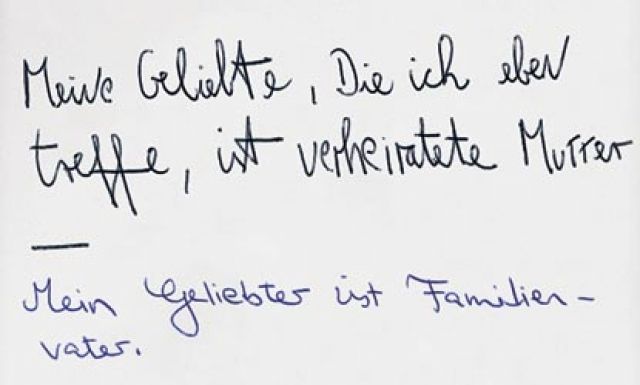 Meine Geliebte, Die ich eben
treffe, ist verheiratete Mutter
—
Mein Geliebter ist Familien-
vater.